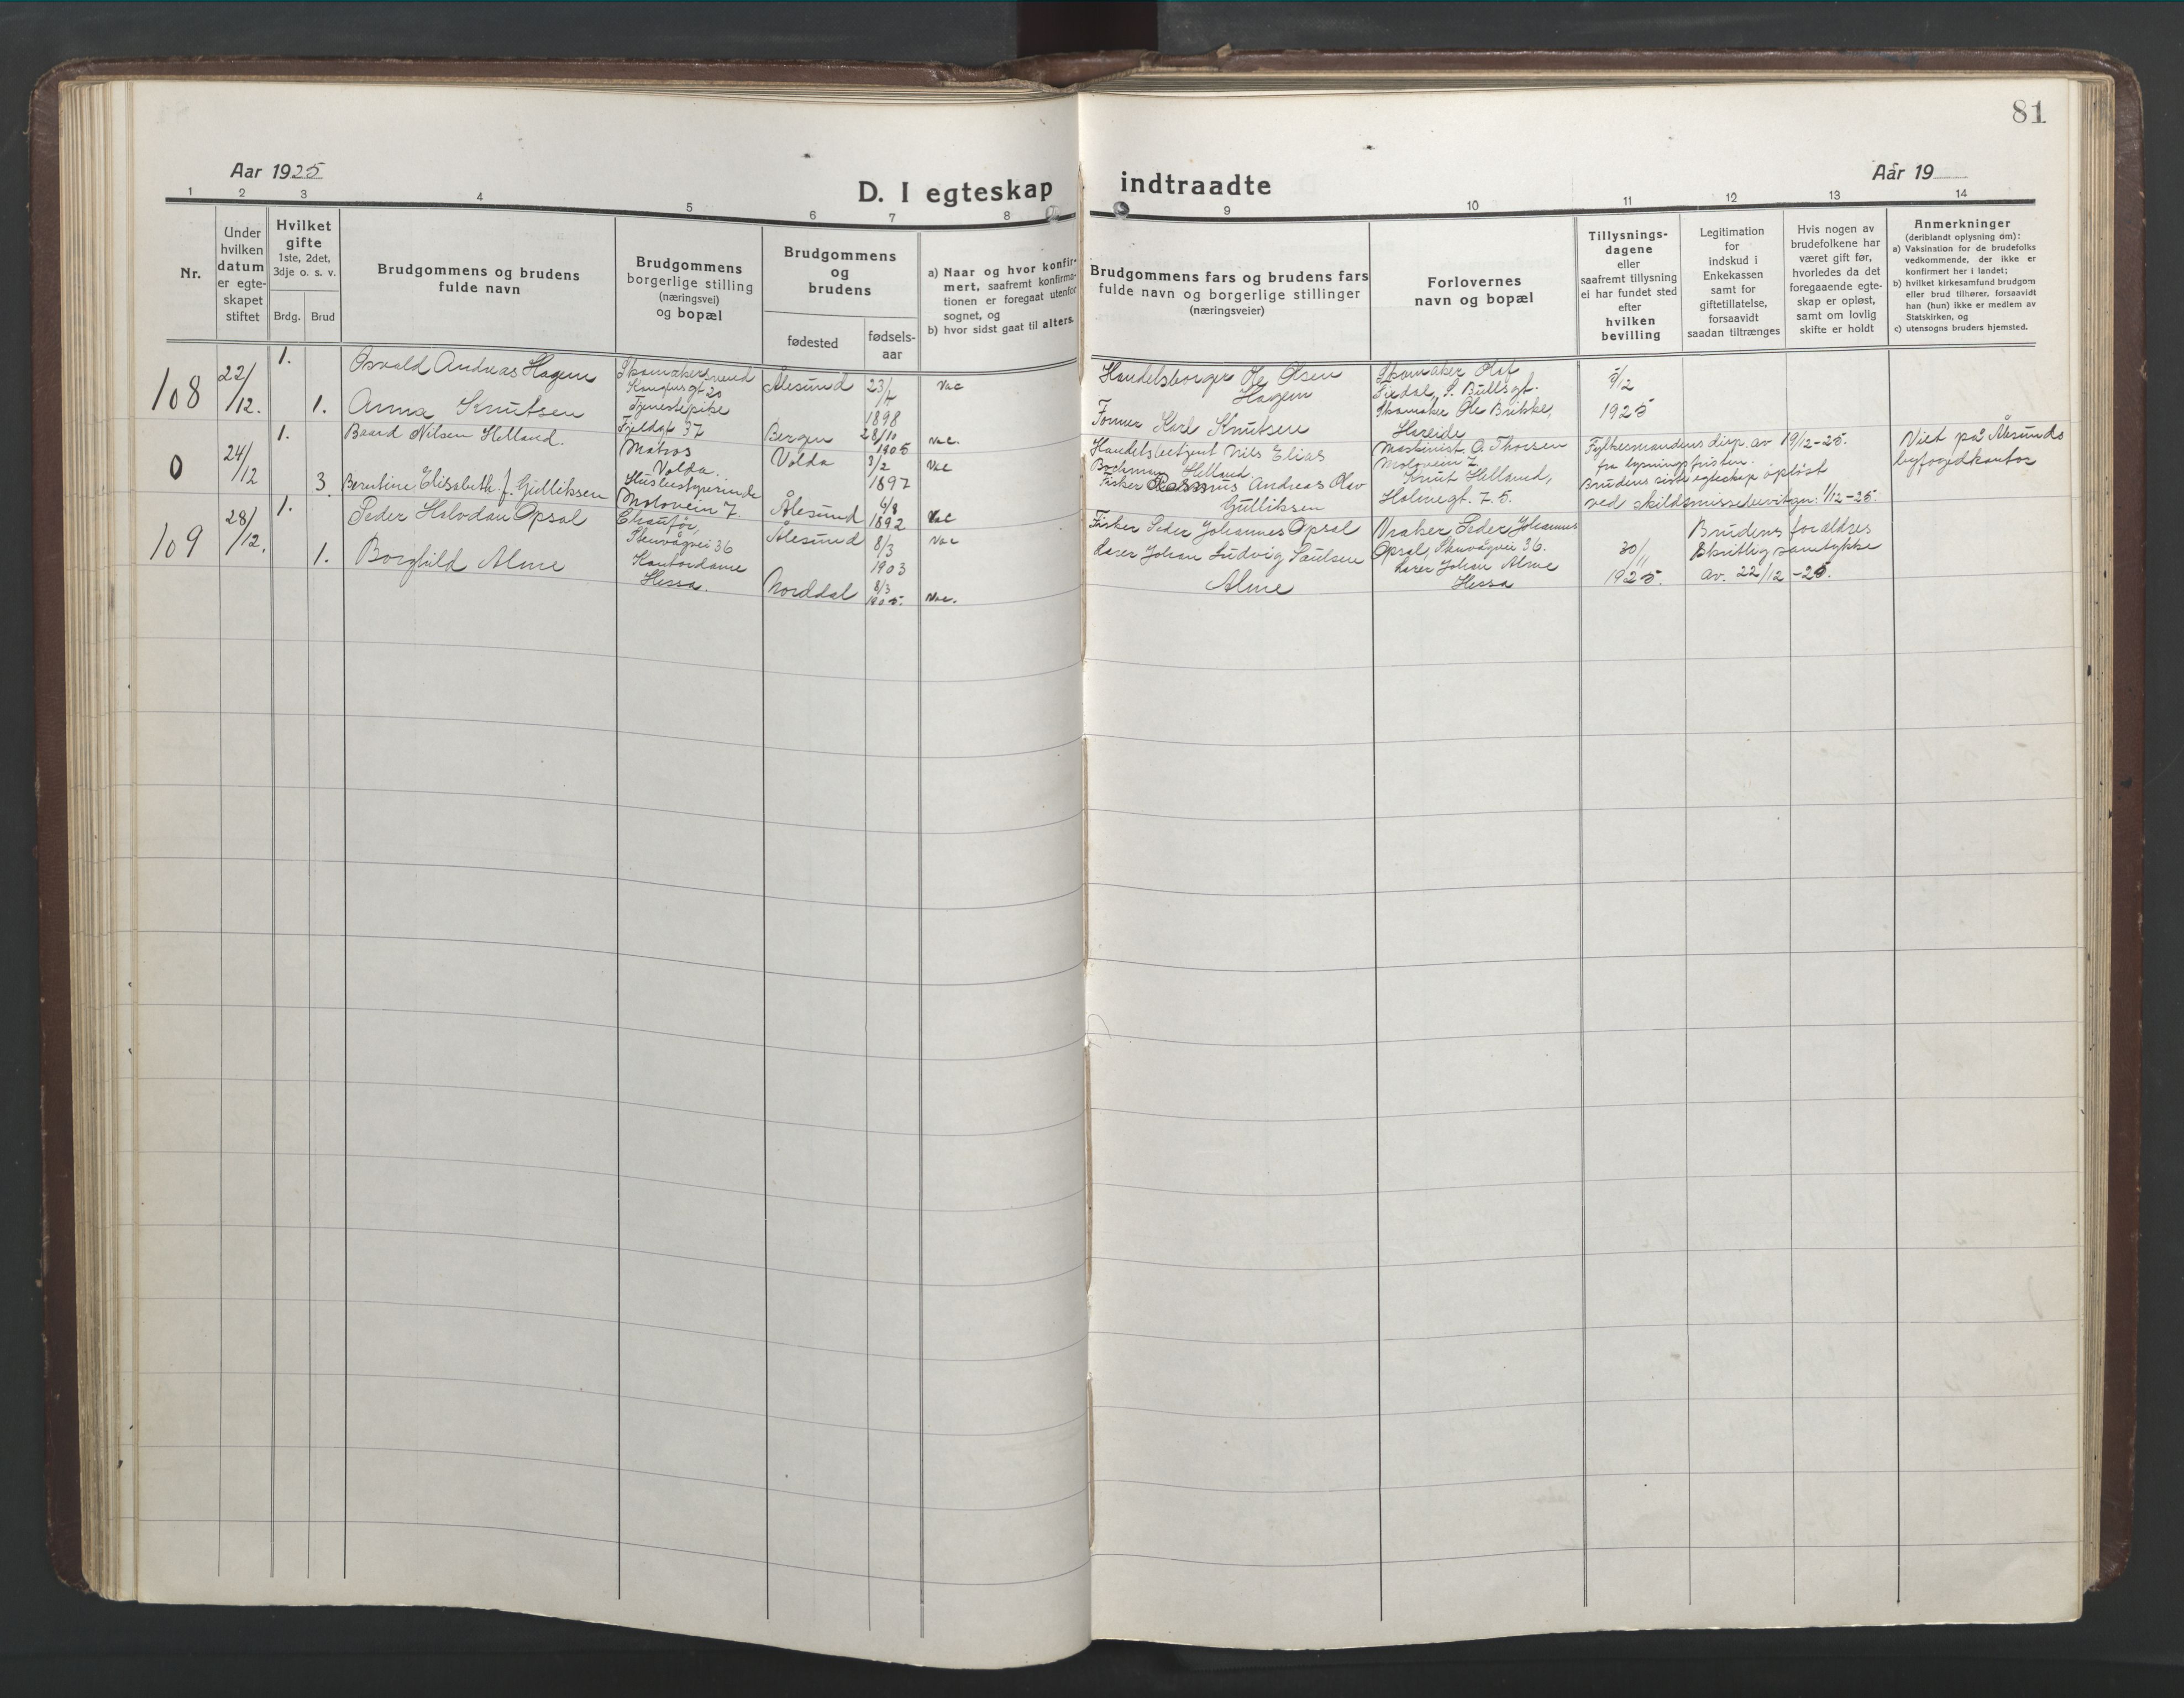 81
Aar 1925
D. I egteskap indtraadte
Aar 19
1 2 3 4 5 6 7 8 9 10 11 12 13 14
Nr.
Under
hvilken
datum
er egte-
skapet
stiftet
Hvilket
gifte
1ste, 2det,
3dje o. s. v.
Brdg. Brud
Brudgommens og brudens
fulde navn
Brudgommens
borgerlige stilling
(næringsvei)
og bopæl
Brudgommens
og
brudens
fødested
fødsels-
aar
a) Naar og hvor konfir-
mert, saafremt konfirma-
tionen er foregaat utenfor
sognet, og
b) hvor sidst gaat til alters.
Brudgommens fars og brudens fars
fulde navn og borgerlige stillinger
(næringsveier)
Forlovernes
navn og bopæl
Tillysnings-
dagene
eller
saafremt tillysning
ei har fundet sted
efter
hvilken
bevilling
Legitimation
for
indskud i
Enkekassen
samt for
giftetillatelse,
forsaavidt
saadan tiltrænges
Hvis nogen av
brudefolkene har
været gift før,
hvorledes da det
foregaaende egte-
skap er opløst,
samt om lovlig
skifte er holdt
Anmerkninger
(deriblandt oplysning om):
a) Vaksination for de brudefolks
vedkommende, der ikke er
konfirmert her i landet;
b) hvilket kirkesamfund brudgom
eller brud tilhører, forsaavidt
han (hun) ikke er medlem av
Statskirken, og
c) utensogns bruders hjemsted.
108
22/
/12.
1.
1.
Osvald Andreas Hagem
Anna Knutsen
Skomakersvend
Kongensgt 20
Tjenestepike
Fjeldgt 37
Ålesund
Bergen
23/7
1898
28/10
1905
Vac
Vac.
Handelsborger Ole Olsen
Hagem
Former Karl Knutsen
Skomaker Olaf
Sirdal, S. Bullsgt.
Skomaker Ole Brikke,
Hareide
5/12
1925
0
24/
/12
1.
3.
Baard Nilsen Helland.
Berntine Elisabeth f. Gulliksen
Matros
Volda.
Husbestyrerinde
Moloveien 7.
Volda
Ålesund
3/2
1897
6/8
1892
Vac
Vac
Handelsbetjent Nils Elias
Helland
Fisker Rasmus Andreas Olav
Gulliksen
Maskinist O. Thorsen
Moloveien 7.
Knut Helland,
Holmegt. 7. 5.
Fylkesmandens disp. av 19/12-25.
fra lysningsfristen.
Brudens siste egteskap opløst
ved skilsmissebevilgn. 1/12-25.
Viet på Ålesunds
byfogedkontor
109
28/
/12.
1.
1.
Peder Halvdan Opsal
Borghild Alme
Chaufør,
Stenvågvei 36
Kontordame
Hessa.
Ålesund
Norddal
8/3
1903
8/3
1905.
Vac
Vac.
Fisker Peder Johannes Opsal
Lærer Johan Ludvig Paulsen
Alme
Vraker Peder Johannes
Opsal, Stenvågvei 36.
Lærer Johan Alme
Hessa
30/11
1925.
Brudens forældres
Skriftlig samtykke
av. 22/12-25.